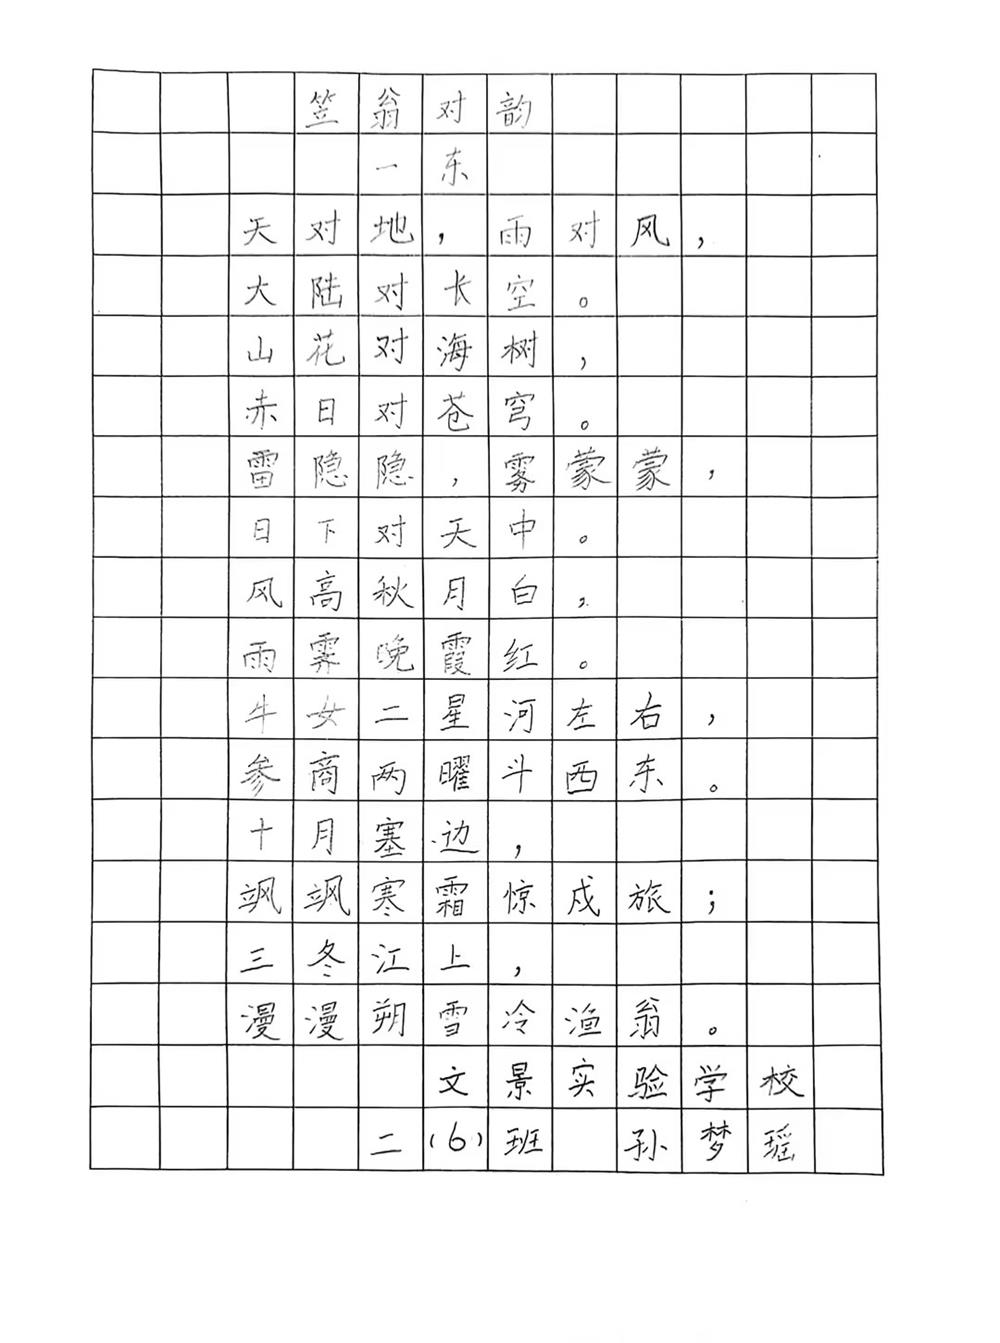 笠翁对韵
一东
天对地，雨对风，
大陆对长空。
山花对海树，
赤日对苍穹。
雷隐隐，雾蒙蒙，
日下对天中。
风高秋月白，
雨霁晚霞红。
牛女二星河左右，
参商两曜斗西东。
十月塞边，
飒飒寒霜惊戍旅；
三冬江上，
漫漫朔雪冷渔翁。
文景实验学校
二(6)班 孙梦瑶